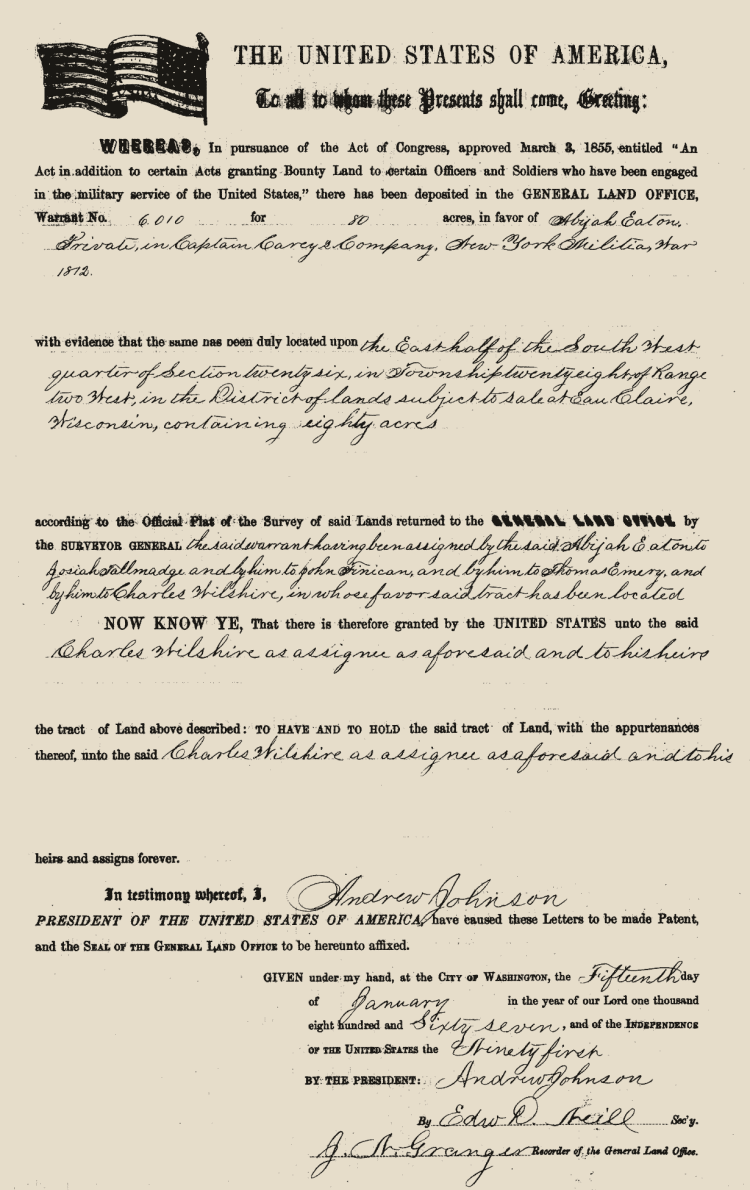 THE UNITED STATES OF AMERICA,
To all to whom these Presents shall come, Greeting:
WHEREAS, In pursuance of the Act of Congress, approved March 3, 1855, entitled "An
Act in addition to certain Acts granting Bounty Land to certain Officers and Soldiers who have been engaged
in the military service of the United States," there has been deposited in the GENERAL LAND OFFICE,
Warrant No. 6.010 for 80 acres, in favor of Abijah Eaton.
Private, in Captain Carey's Company, New York Militia, War
1812.
with evidence that the same has been duly located upon the East half of the South West
quarter of Section twenty six, in Township twenty eight, of Range
two West, in the District of lands subject to sale at Eau Claire,
Wisconsin, containing eighty acres
according to the Official Plat of the Survey of said Lands returned to the GENERAL LAND OFFICE by
the SURVEYOR GENERAL the said warrant having been assigned by the said Abijah Eaton to
Josiah Tallmadge and by him to John Finican, and by him to Thomas Emery, and
by him to Charles Wilshire, in whose favor said tract has been located
NOW KNOW YE, That there is therefore granted by the UNITED STATES unto the said
Charles Wilshire as assignee as aforesaid and to his heirs
the tract of Land above described: TO HAVE AND TO HOLD the said tract of Land, with the appurtenances
thereof, unto the said Charles Wilshire as assignee as aforesaid and to his
heirs and assigns forever.
In testimony whereof, I, Andrew Johnson
PRESIDENT OF THE UNITED STATES OF AMERICA, have caused these Letters to be made Patent,
and the SEAL OF THE GENERAL LAND OFFICE to be hereunto affixed.
GIVEN under my hand, at the CITY OF WASHINGTON, the Fifteenth day
of January in the year of our Lord one thousand
eight hundred and Sixty seven, and of the INDEPENDENCE
OF THE UNITED STATES the Ninety first
BY THE PRESIDENT: Andrew Johnson
By Edw D. Neill Sec'y.
J. N. Granger Recorder of the General Land Office.